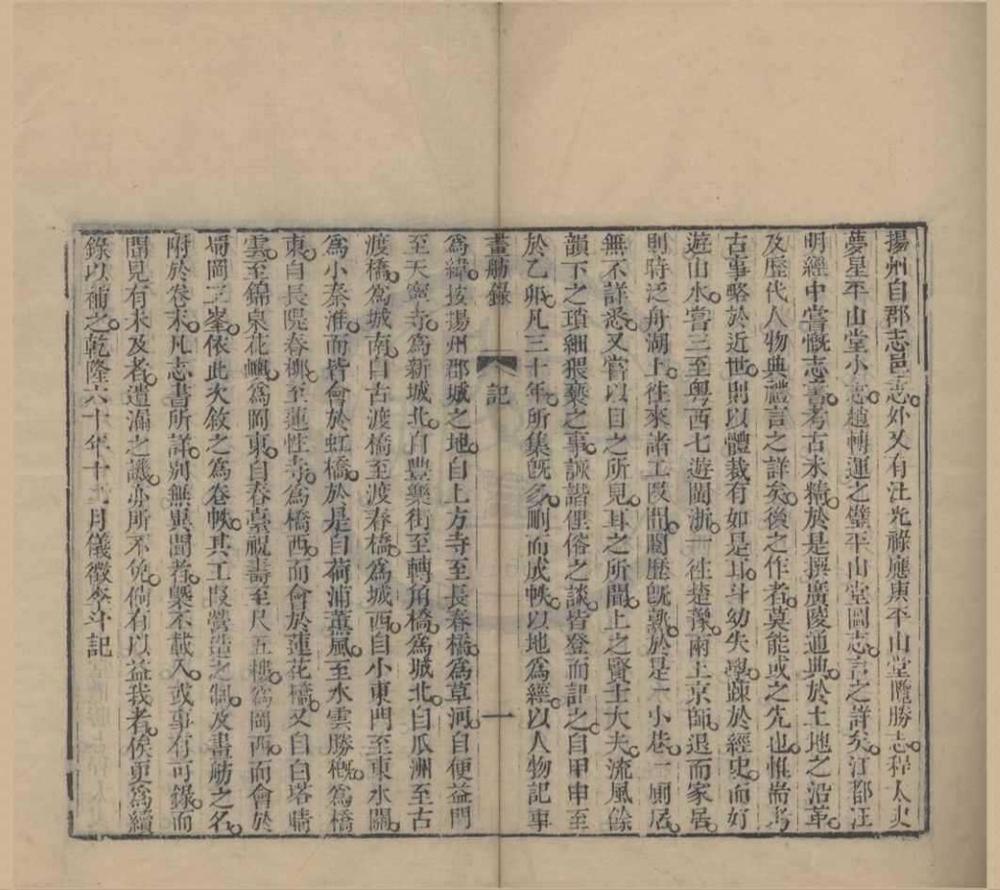 揚州自郡志邑志外又有汪光祿應庚平山堂覽勝志程太史
夢星平山堂小志趙轉運之璧平山堂圖志言之詳矣江都汪
明經中嘗慨志書考古未精於是撰廣陵通典於土地之沿革
及歷代人物典禮言之詳矣後之作者莫能或之先也惟尚考
古事略於近世則以體裁有如是耳斗幼失學疎於經史而好
遊山水嘗三至粵西七遊閩浙一往楚豫兩上京師退而家居
則時泛舟湖上往來諸工段間閱歷既熟於是一小巷一廁居
無不詳悉又嘗以目之所見耳之所聞上之賢士大夫流風餘
韻下之瑣細猥褻之事詼諧俚俗之談皆登而記之自甲申至
於乙卯凡三十年所集既多刪而成帙以地為經以人物記事
畫舫錄 記 一
為緯按揚州郡城之地自上方寺至長春橋為草河自便益門
至天寧寺為新城北自豐樂街至轉角橋為城北自瓜洲至古
渡橋為城南自古渡橋至渡春橋為城西自小東門至東水關
為小秦淮而皆會於虹橋於是自荷浦薰風至水雲勝概為橋
東自長隄春柳至蓮性寺為橋西而會於蓮花橋又自白塔晴
雲至錦泉花嶼為岡東自春臺祝壽至尺五樓為岡西而會於
蜀岡三峯依此次敘之為卷帙其工段營造之制及畫舫之名
附於卷末凡志書所詳別無異聞者槩不載入或事有可錄而
聞見有未及者遺漏之譏亦所不免倘有以益我者俟更為續
錄以補之乾隆六十年十二月儀徵李斗記